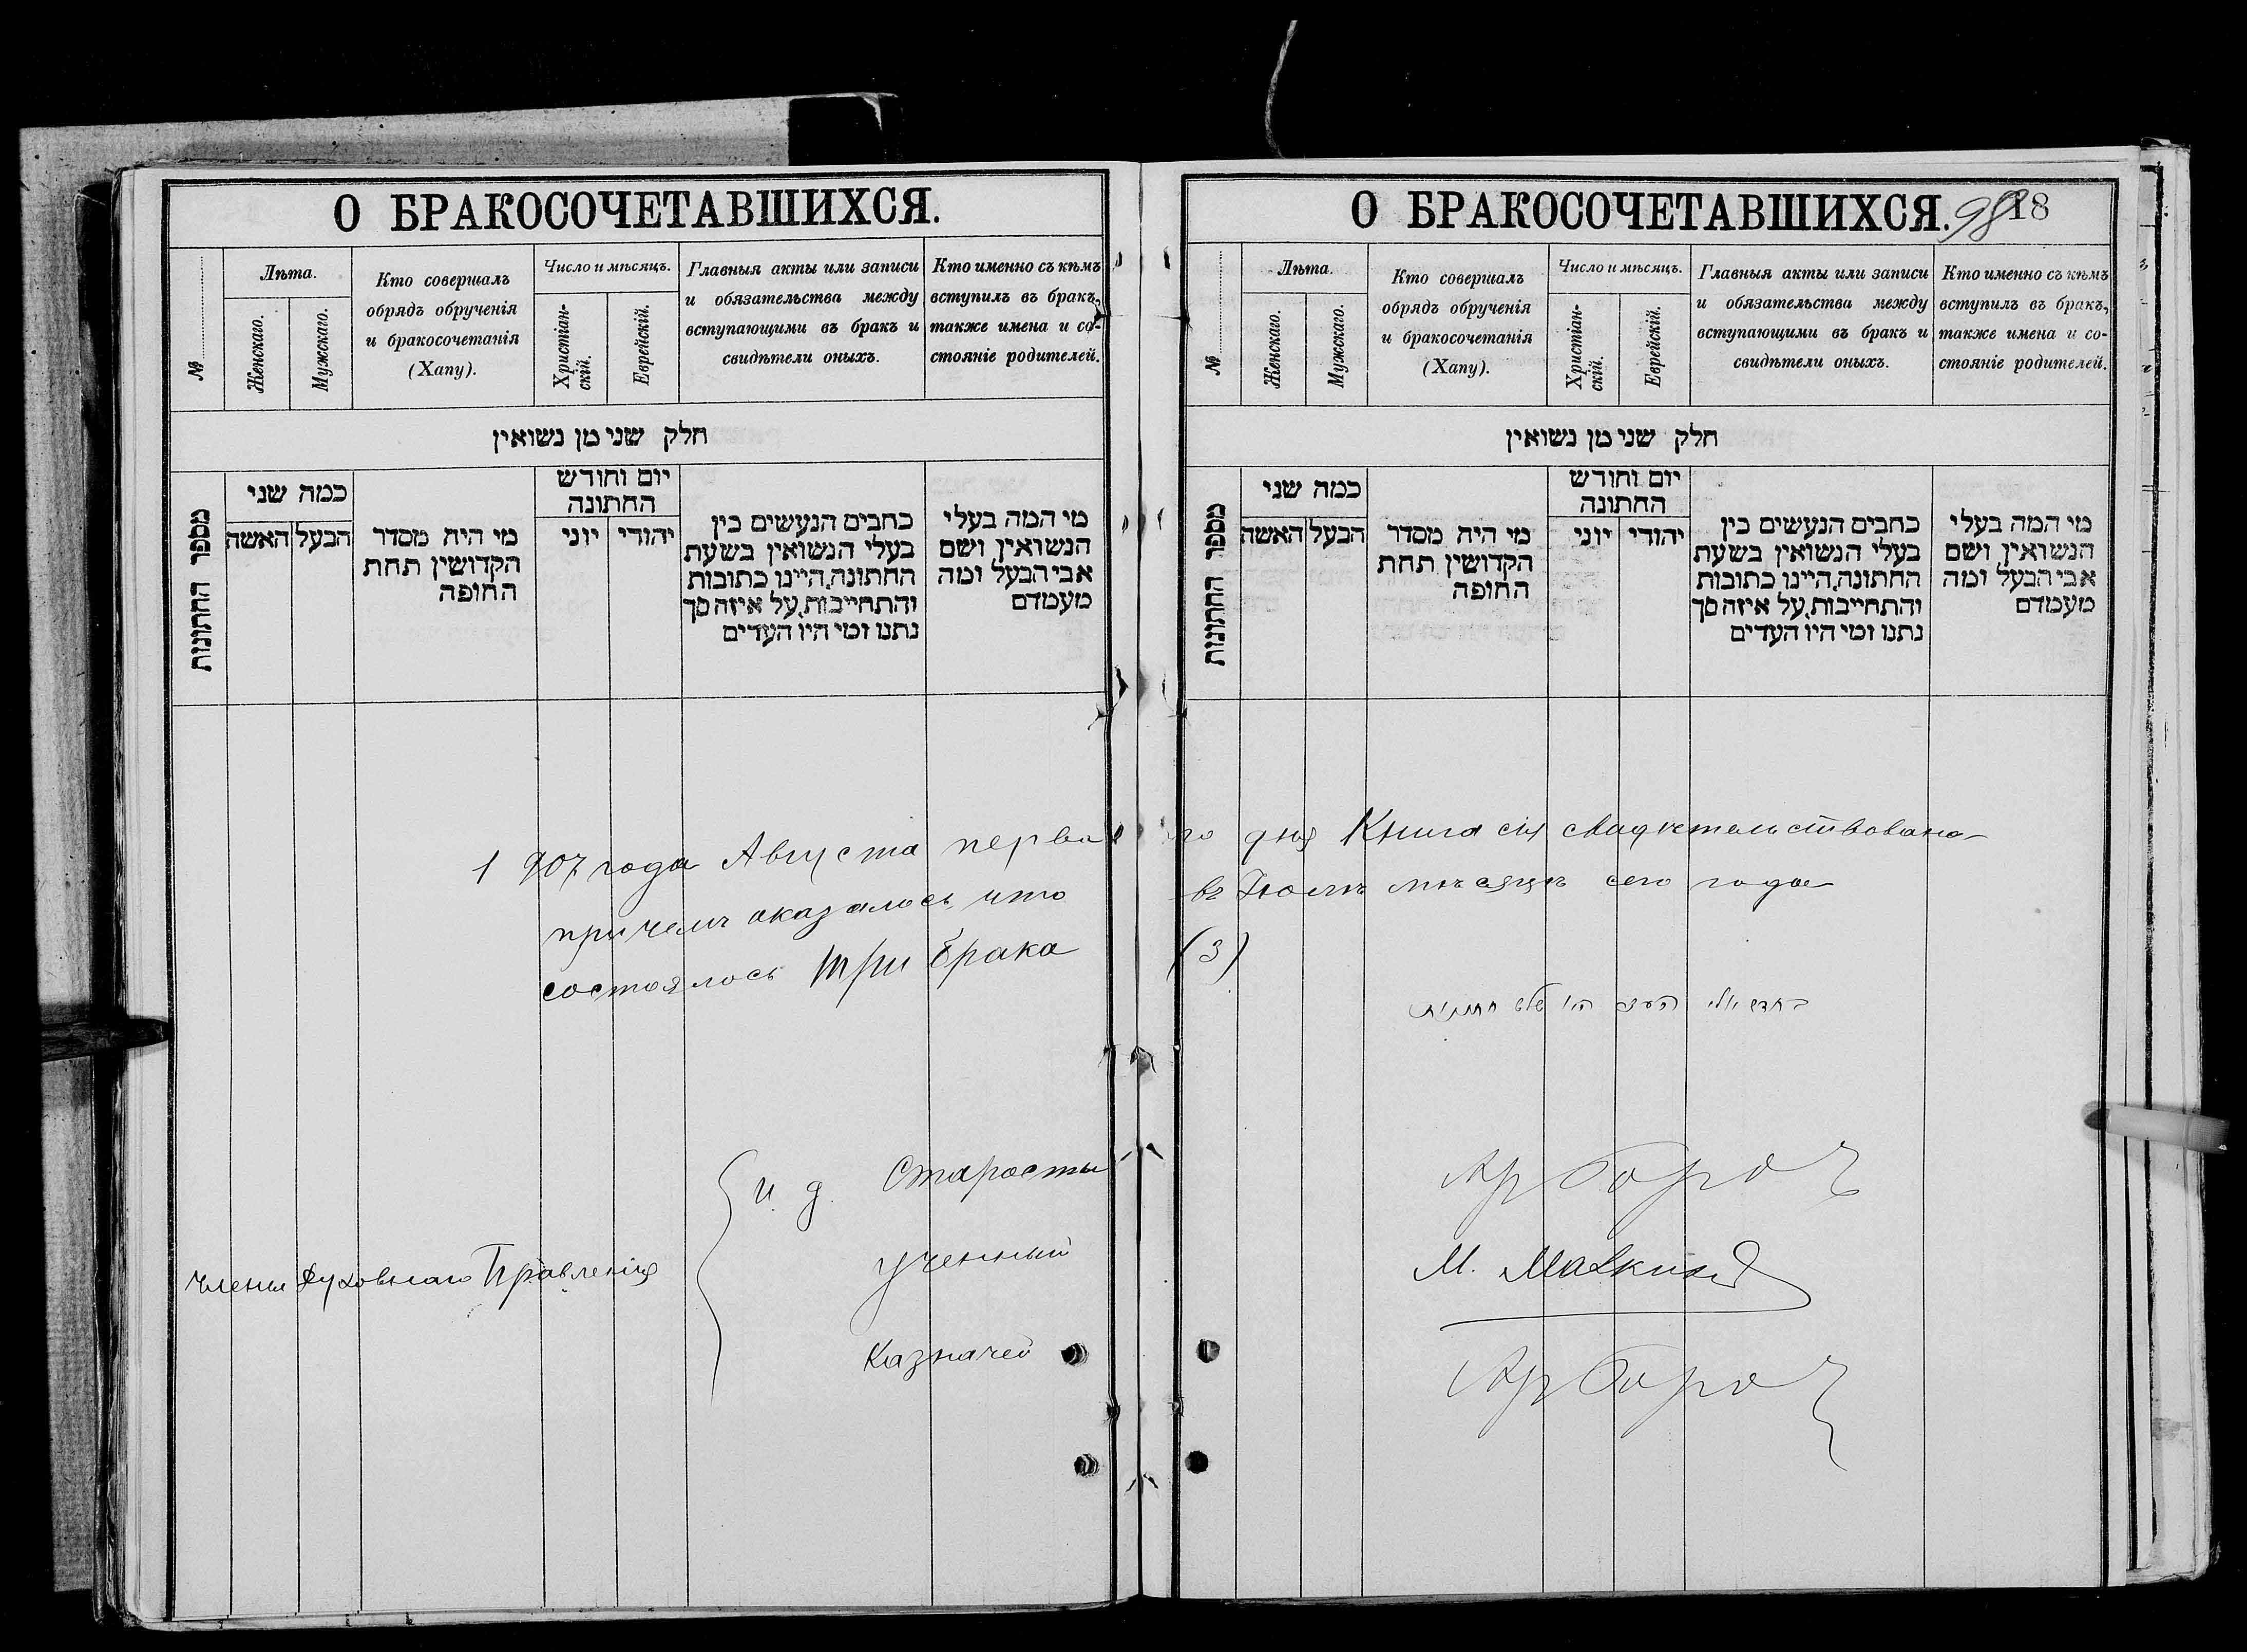 О БРАКОСОЧЕТАВШИХСЯ.
№
Лѣта.
Женскаго.
Мужскаго.
Кто совершалъ
обрядъ обрученія
и бракосочетанія
(Хапу).
Число и мѣсяцъ.
Христіан-
скій.
Еврейскій.
Главныя акты или записи
и обязательства между
вступающими въ бракъ и
свидѣтели оныхъ.
Кто именно съ кѣмъ
вступилъ въ бракъ,
также имена и со-
стояніе родителей.
חלק שני מן נשואין
מספר החתונות
כמה שני
האשה
הבעל
מי היה מסדר
הקדושין תחת
החופה
יום וחודש
החתונה
יוני
יהודי
כתבים הנעשים בין
בעלי הנשואין בשעת
החתונה, היינו כתובות
והתחייבות, על איזה סך
נתנו ומי היו העדים
מי המה בעלי
הנשואין ושם
אבי הבעל ומה
מעמדם
О БРАКОСОЧЕТАВШИХСЯ.
98
18
№
Лѣта.
Женскаго.
Мужскаго.
Кто совершалъ
обрядъ обрученія
и бракосочетанія
(Хапу).
Число и мѣсяцъ.
Христіан-
скій.
Еврейскій.
Главныя акты или записи
и обязательства между
вступающими въ бракъ и
свидѣтели оныхъ.
Кто именно съ кѣмъ
вступилъ въ бракъ,
также имена и со-
стояніе родителей.
חלק שני מן נשואין
מספר החתונות
כמה שני
האשה
הבעל
מי היה מסדר
הקדושין תחת
החופה
יום וחודש
החתונה
יוני
יהודי
כתבים הנעשים בין
בעלי הנשואין בשעת
החתונה, היינו כתובות
והתחייבות, על איזה סך
נתנו ומי היו העדים
מי המה בעלי
הנשואין ושם
אבי הבעל ומה
מעמדם
1907 года Августа перваго дня Книга сія свидѣтельствована
причемъ оказалось, что въ Іюлѣ мѣсяцѣ сего года
состоялось три брака (3)
בחדש יולי היו שלש חתונות
Члены Духовнаго Правленія
И. д. Старосты
Ученный
М.
Казначей